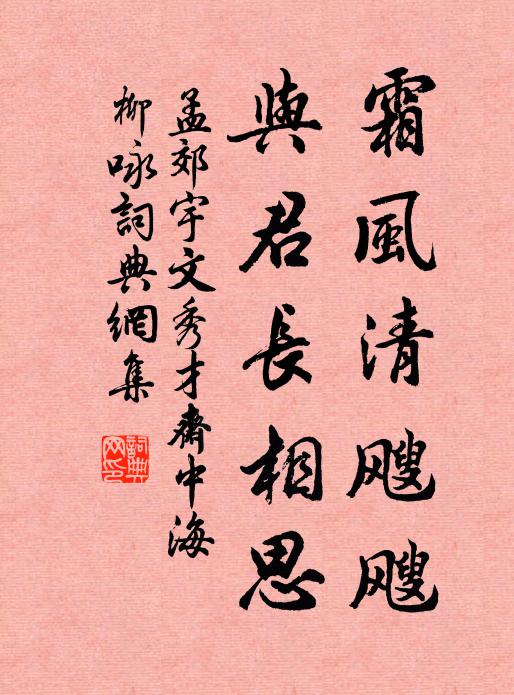 霜風清颼颼
與君長相思
孟郊宇文秀才齋中海
柳咏詞典網集
詞典
网印